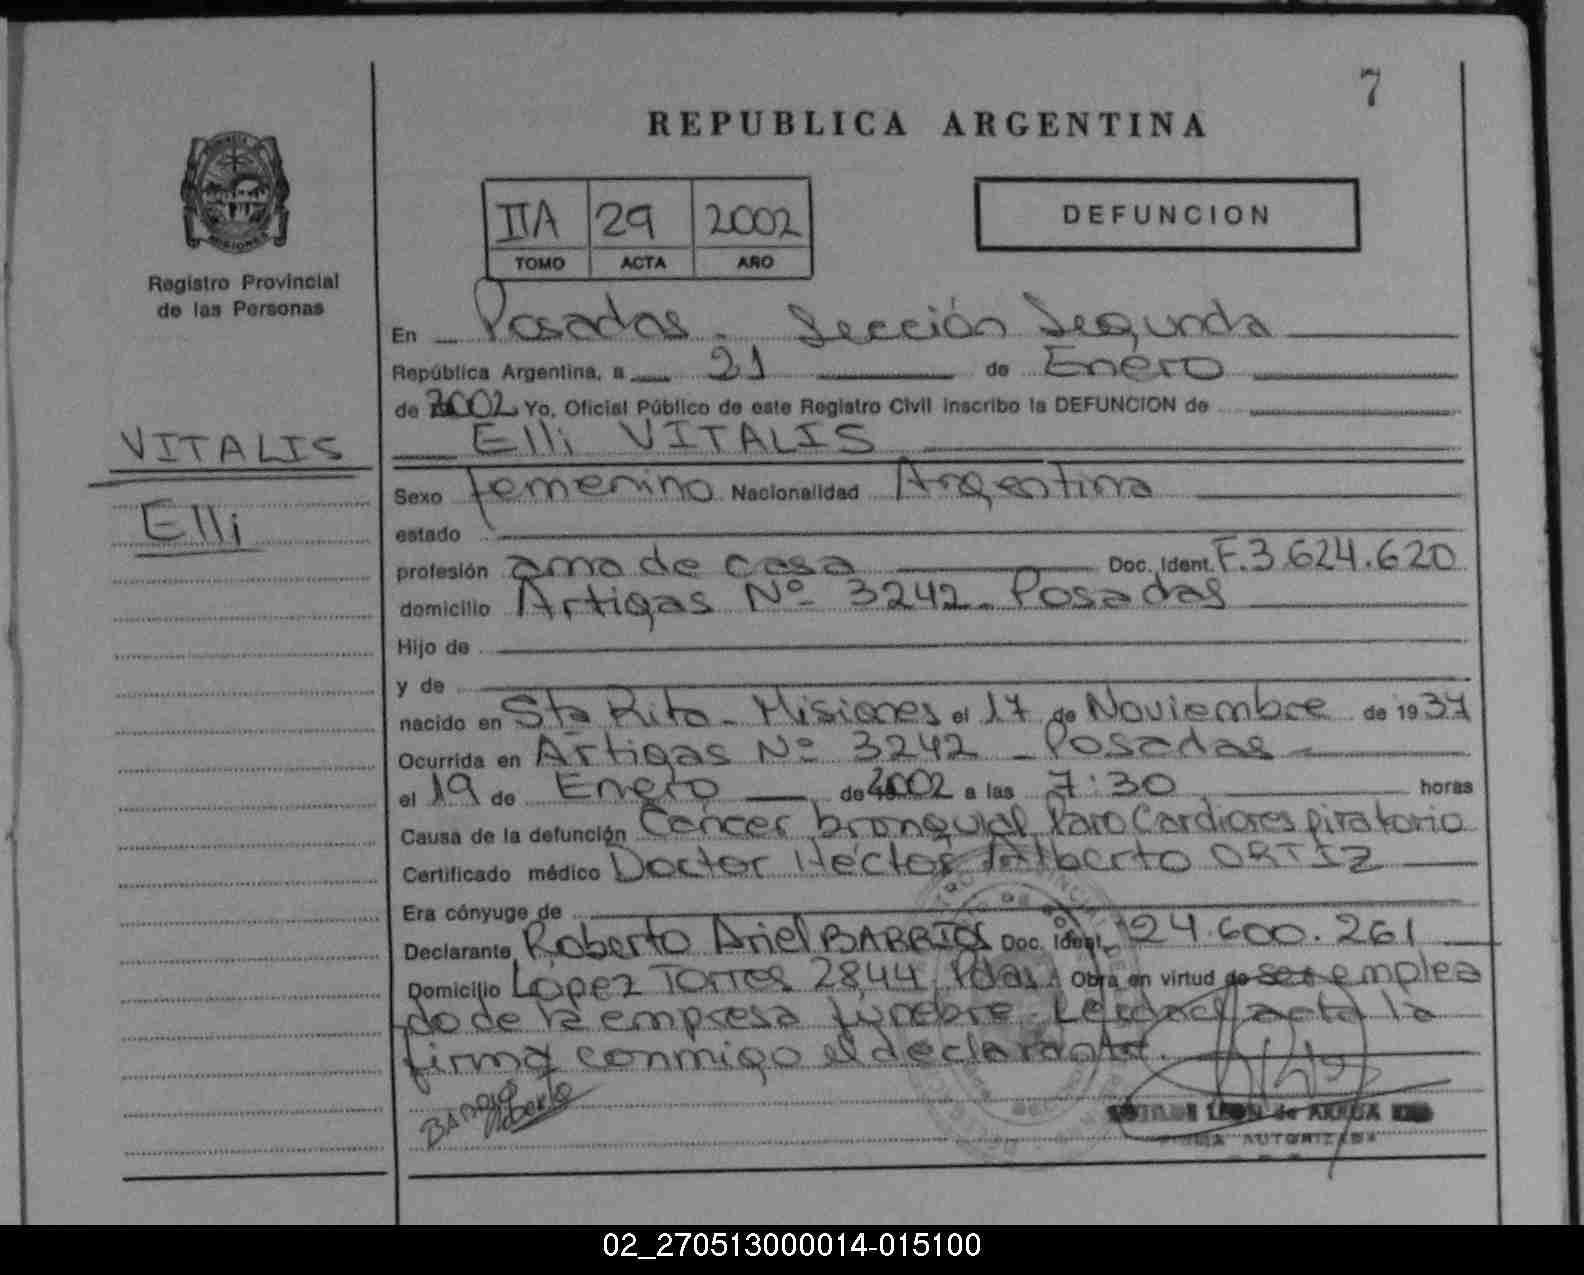 7
REPUBLICA ARGENTINA
MISIONES
Registro Provincial
de las Personas
IIA 29 2002
TOMO ACTA AÑO
DEFUNCION
En Posadas - Sección Segunda
República Argentina, a 21 de Enero
de 2002 Yo, Oficial Público de este Registro Civil inscribo la DEFUNCION de
VITALIS
Elli
Elli VITALIS
Sexo femenino Nacionalidad Argentina
estado
profesión ama de casa Doc. Ident. F.3.624.620
domicilio Artigas Nº 3242 - Posadas
Hijo de
y de
nacido en Sta Rita - Misiones el 17 de Noviembre de 1937
Ocurrida en Artigas Nº 3242 - Posadas
el 19 de Enero de 2002 a las 7:30 horas
Causa de la defunción Cáncer bronquial Paro Cardiorespiratorio
Certificado médico Doctor Héctor Alberto ORTIZ
Era cónyuge de
Declarante Roberto Ariel BARRIOS Doc. Ident. 24.600.261
Domicilio López Torres 2844 Pdas. Obra en virtud de ser emplea
do de la empresa fúnebre. Leída el acta la
firma conmigo el declarante.
FIRMA AUTORIZADA
02_270513000014-015100